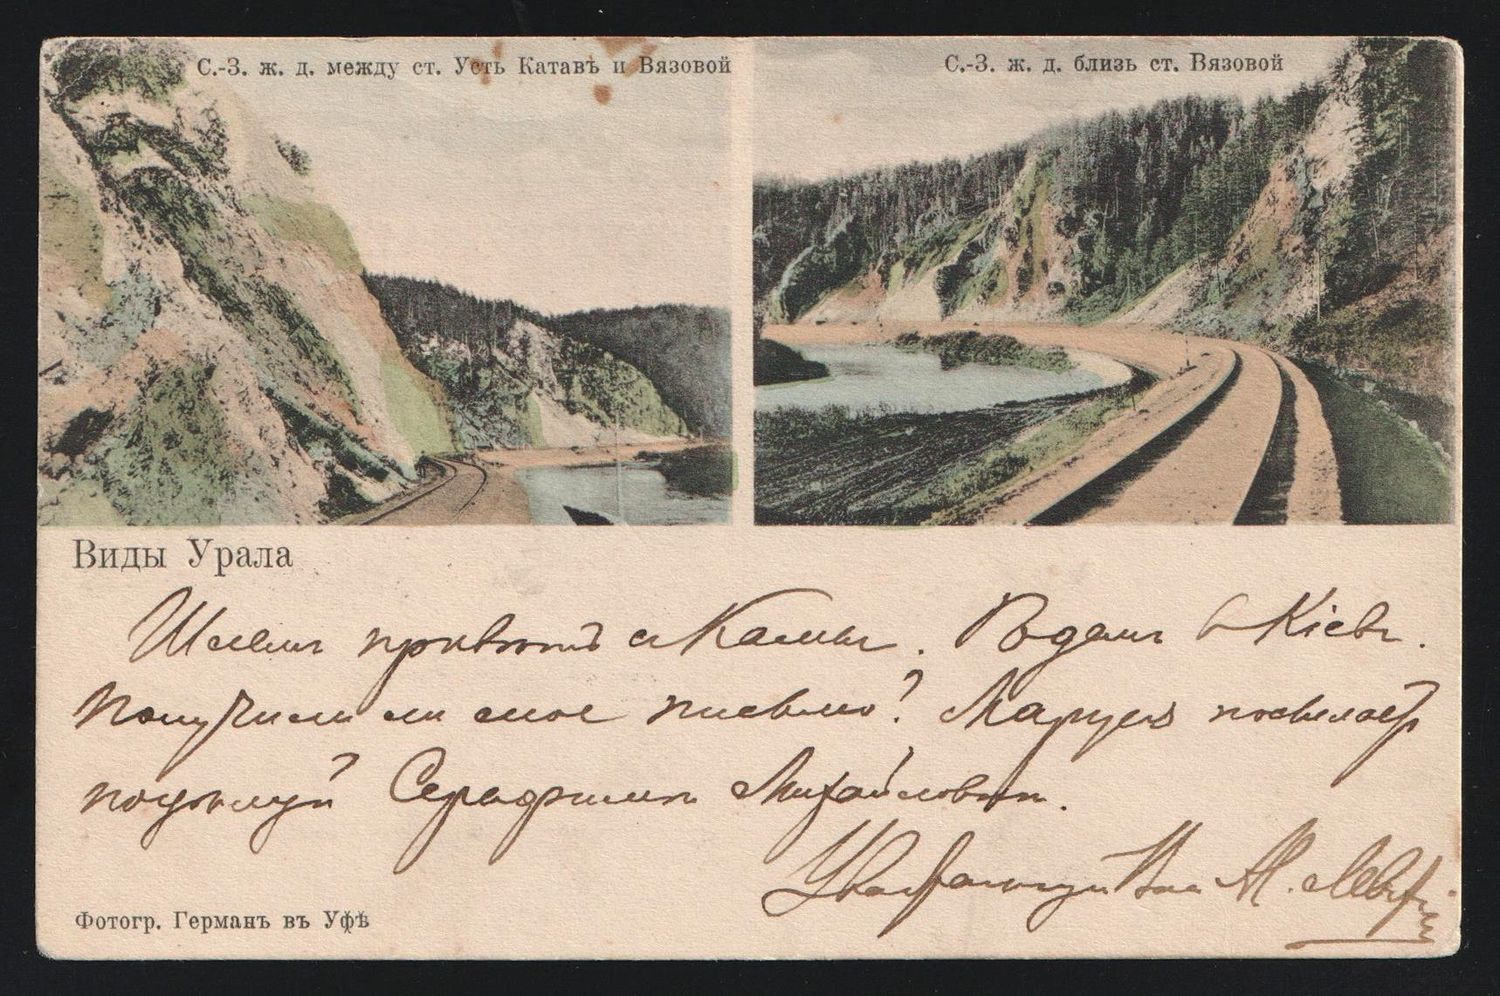 С.-З. ж. д. между ст. Усть Катавъ и Вязовой
С.-З. ж. д. близь ст. Вязовой
Виды Урала
Шлемъ привѣтъ съ Камы. Ѣдемъ в Кіевъ.
Получили ли мое письмо? Маруся посылаетъ
поцѣлуй Серафимѣ Михайловнѣ.
Уважающій Васъ М.
Фотогр. Германъ въ Уфѣ